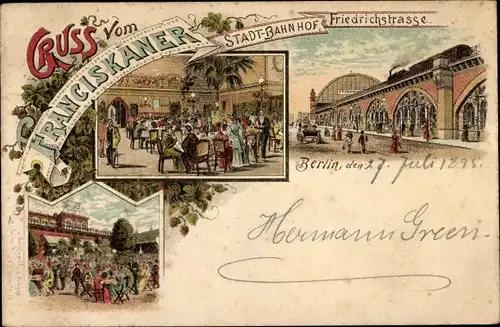 GRUSS VOM
FRANCISKANER
STADT-BAHNHOF
Friedrichstrasse.
Berlin, den 27 Juli 1895
Hermann Green.